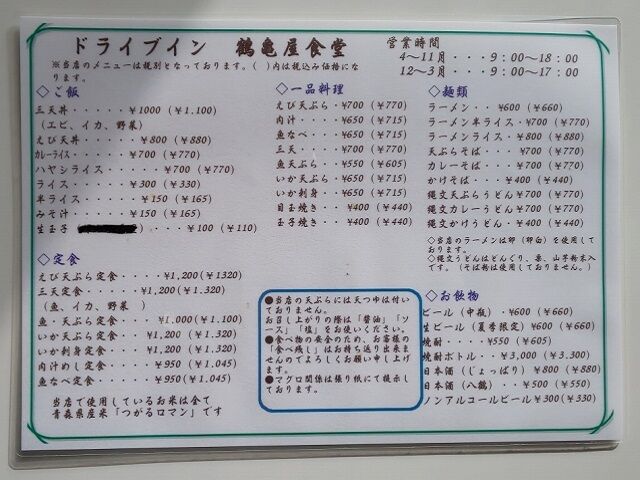 ドライブイン 鶴亀屋食堂
営業時間
4～11月・・・9：00～18：00
12～3月・・・9：00～17：00
※当店のメニューは税別となっております。( )内は税込み価格になります。
◇ご飯
三天丼・・・・・¥1000（¥1.100）
（エビ、イカ、野菜）
えび天丼・・・・・¥800（¥880）
カレーライス・・・・・¥700（¥770）
ハヤシライス・・・・・¥700（¥770）
ライス・・・・・¥300（¥330）
半ライス・・・・・¥150（¥165）
みそ汁・・・・・¥150（¥165）
生玉子 ）・・・¥100（¥110）
◇定食
えび天ぷら定食・・・・¥1,200(¥1320)
三天定食・・・・¥1,200（¥1,320）
（魚、イカ、野菜 ）
魚・天ぷら定食・・・¥1,000(¥1.100)
いか天ぷら定食・・・¥1,200（¥1,320）
いか刺身定食・・・¥1,200（¥1,320）
肉汁めし定食・・・¥950（¥1.045）
魚なべ定食・・・¥950（¥1.045）
当店で使用しているお米は全て
青森県産米「つがるロマン」です
◇一品料理
えび天ぷら・・¥700（¥770）
肉汁・・・・・¥650（¥715）
魚なべ・・・・¥650（¥715）
三天・・・・・¥700（¥770）
魚天ぷら・・・¥550（¥605）
いか天ぷら・・¥650（¥715）
いか刺身・・・¥650（¥715）
目玉焼き・・・¥400（¥440）
玉子焼き・・・¥400（¥440）
●当店の天ぷらには天つゆは付いておりません。
お召し上がりの際は「醤油」「ソース」「塩」をお使いください。
●食べ物の安全のため、お客様の「食べ残し」はお持ち送り出来ませんのでよろしくお願い申し上げます。
●マグロ関係は張り紙にて提示しております。
◇麺類
ラーメン・・・¥600（¥660）
ラーメン半ライス・¥700（¥770）
ラーメンライス・・¥800（¥880）
天ぷらそば・・・¥700（¥770）
カレーそば・・・¥700（¥770）
かけそば・・・¥400（¥440）
縄文天ぷらうどん¥700（¥770）
縄文カレーうどん¥700（¥770）
縄文かけうどん・¥400（¥440）
◇当店のラーメンは卵（卵白）を使用しております。
◇縄文うどんはどんぐり、栗、山芋粉末入です。（そば粉は使用しておりません。）
◇お飲物
ビール（中瓶）・¥600（¥660）
生ビール（夏季限定）¥600（¥660）
焼酎・・・・・¥550（¥605）
焼酎ボトル・・・¥3,000（¥3.300）
日本酒（じょっぱり）¥800（¥880）
日本酒（八鶴）・¥500（¥550）
ノンアルコールビール¥300（¥330）